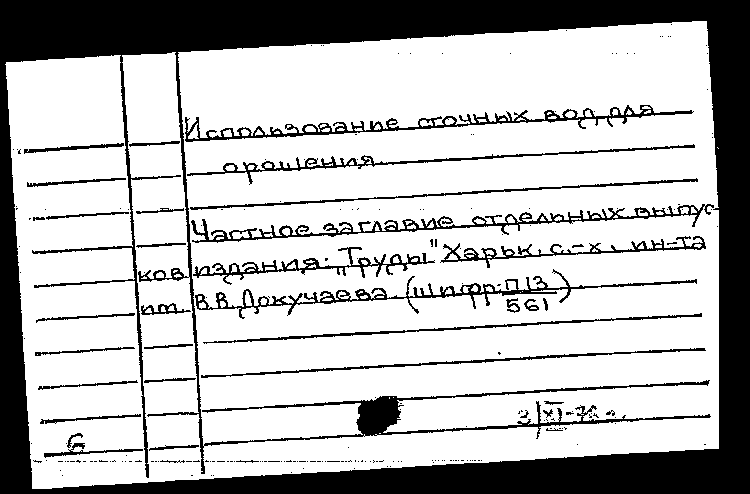 Использование сточных вод для
орошения.
Частное заглавие отдельных выпус-
ков издания: „Труды" Харьк. с.-х. ин-та
им. В.В. Докучаева. (Шифр: П13
561)
3|XI-76 г.
6